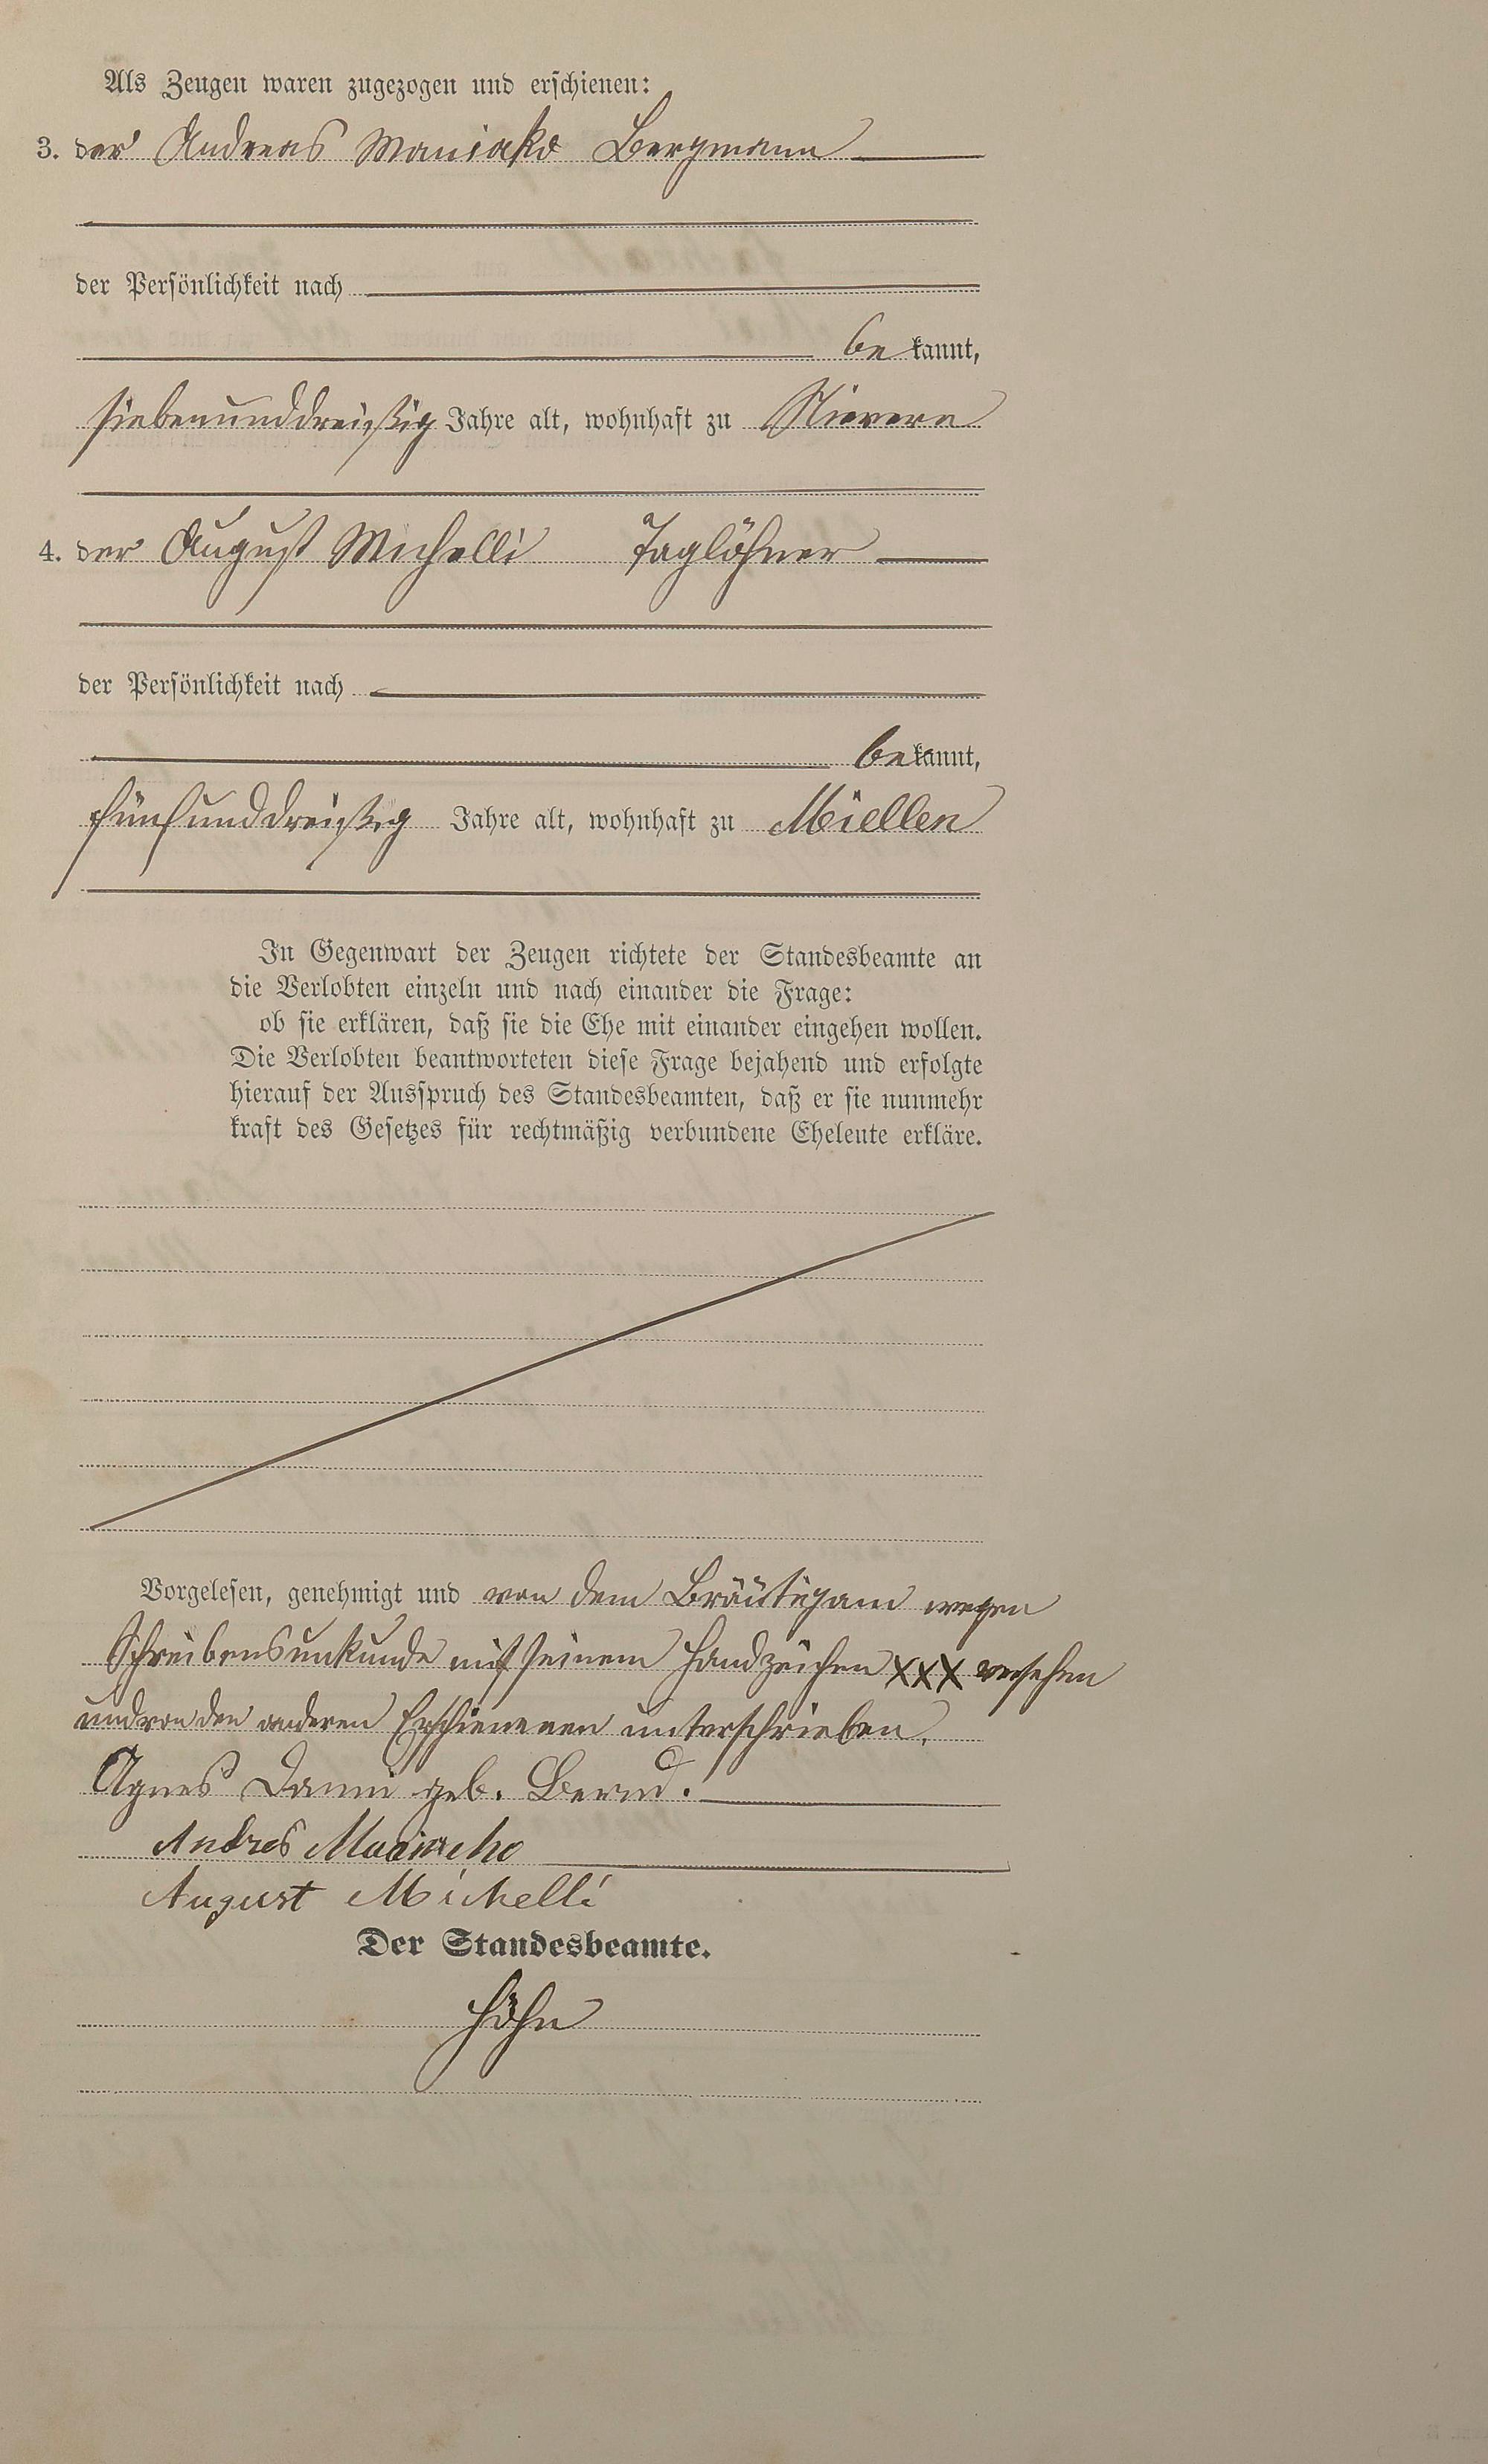 Als Zeugen waren zugezogen und erschienen:
3. der Andreas Maniako Bergmann
der Persönlichkeit nach
be kannt,
siebenunddreißig Jahre alt, wohnhaft zu Nievern
4. der August Michelli Taglöhner
der Persönlichkeit nach
bekannt,
fünfunddreißig Jahre alt, wohnhaft zu Miellen
In Gegenwart der Zeugen richtete der Standesbeamte an
die Verlobten einzeln und nach einander die Frage:
ob sie erklären, daß sie die Ehe mit einander eingehen wollen.
Die Verlobten beantworteten diese Frage bejahend und erfolgte
hierauf der Ausspruch des Standesbeamten, daß er sie nunmehr
kraft des Gesetzes für rechtmäßig verbundene Eheleute erkläre.
Vorgelesen, genehmigt und von dem Bräutigam wegen
Schreibensunkunde mit seinem Handzeichen XXX versehen
und von den anderen Erschienenen unterschrieben.
Agnes Danni geb. Bernd.
Andres
August Michelli
Der Standesbeamte.
Höhn